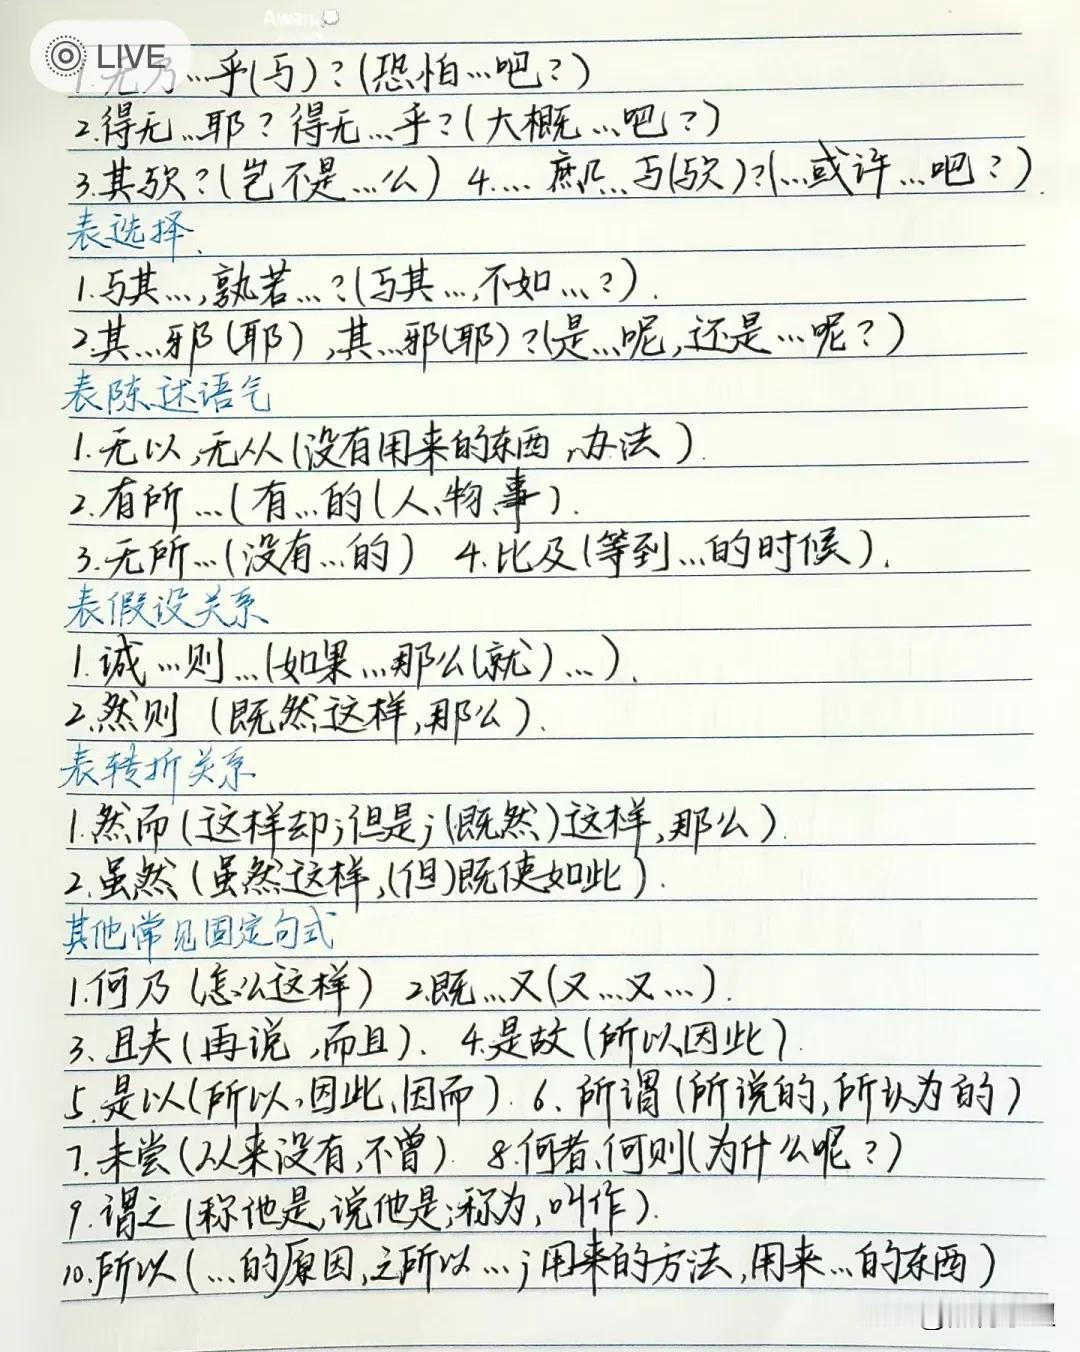 Awan.
LIVE
1.无乃…乎(与)?(恐怕…吧?)
2.得无…耶?得无…乎?(大概…吧?)
3.其欤?(岂不是…么) 4.…庶几…与(欤)?(…或许…吧?).
表选择.
1.与其…,孰若…?(与其…,不如…?).
2.其…邪(耶),其…邪(耶)?(是…呢,还是…呢?)
表陈述语气
1.无以,无从(没有用来的东西,办法).
2.有所…(有…的(人、物、事).
3.无所…(没有…的) 4.比及(等到…的时候).
表假设关系
1.诚…则…(如果…那么(就)…).
2.然则(既然这样,那么).
表转折关系
1.然而(这样却;但是;(既然)这样,那么).
2.虽然(虽然这样,(但)既使如此).
其他常见固定句式
1.何乃(怎么这样) 2.既…又(又…又…).
3、且夫(再说,而且). 4.是故(所以,因此).
5.是以(所以,因此,因而). 6、所谓(所说的,所认为的)
7.未尝(从来没有,不曾). 8.何者、何则(为什么呢?)
9.谓之(称他是,说他是;称为,叫作).
10.所以(…的原因,之所以…;用来的方法,用来…的东西)